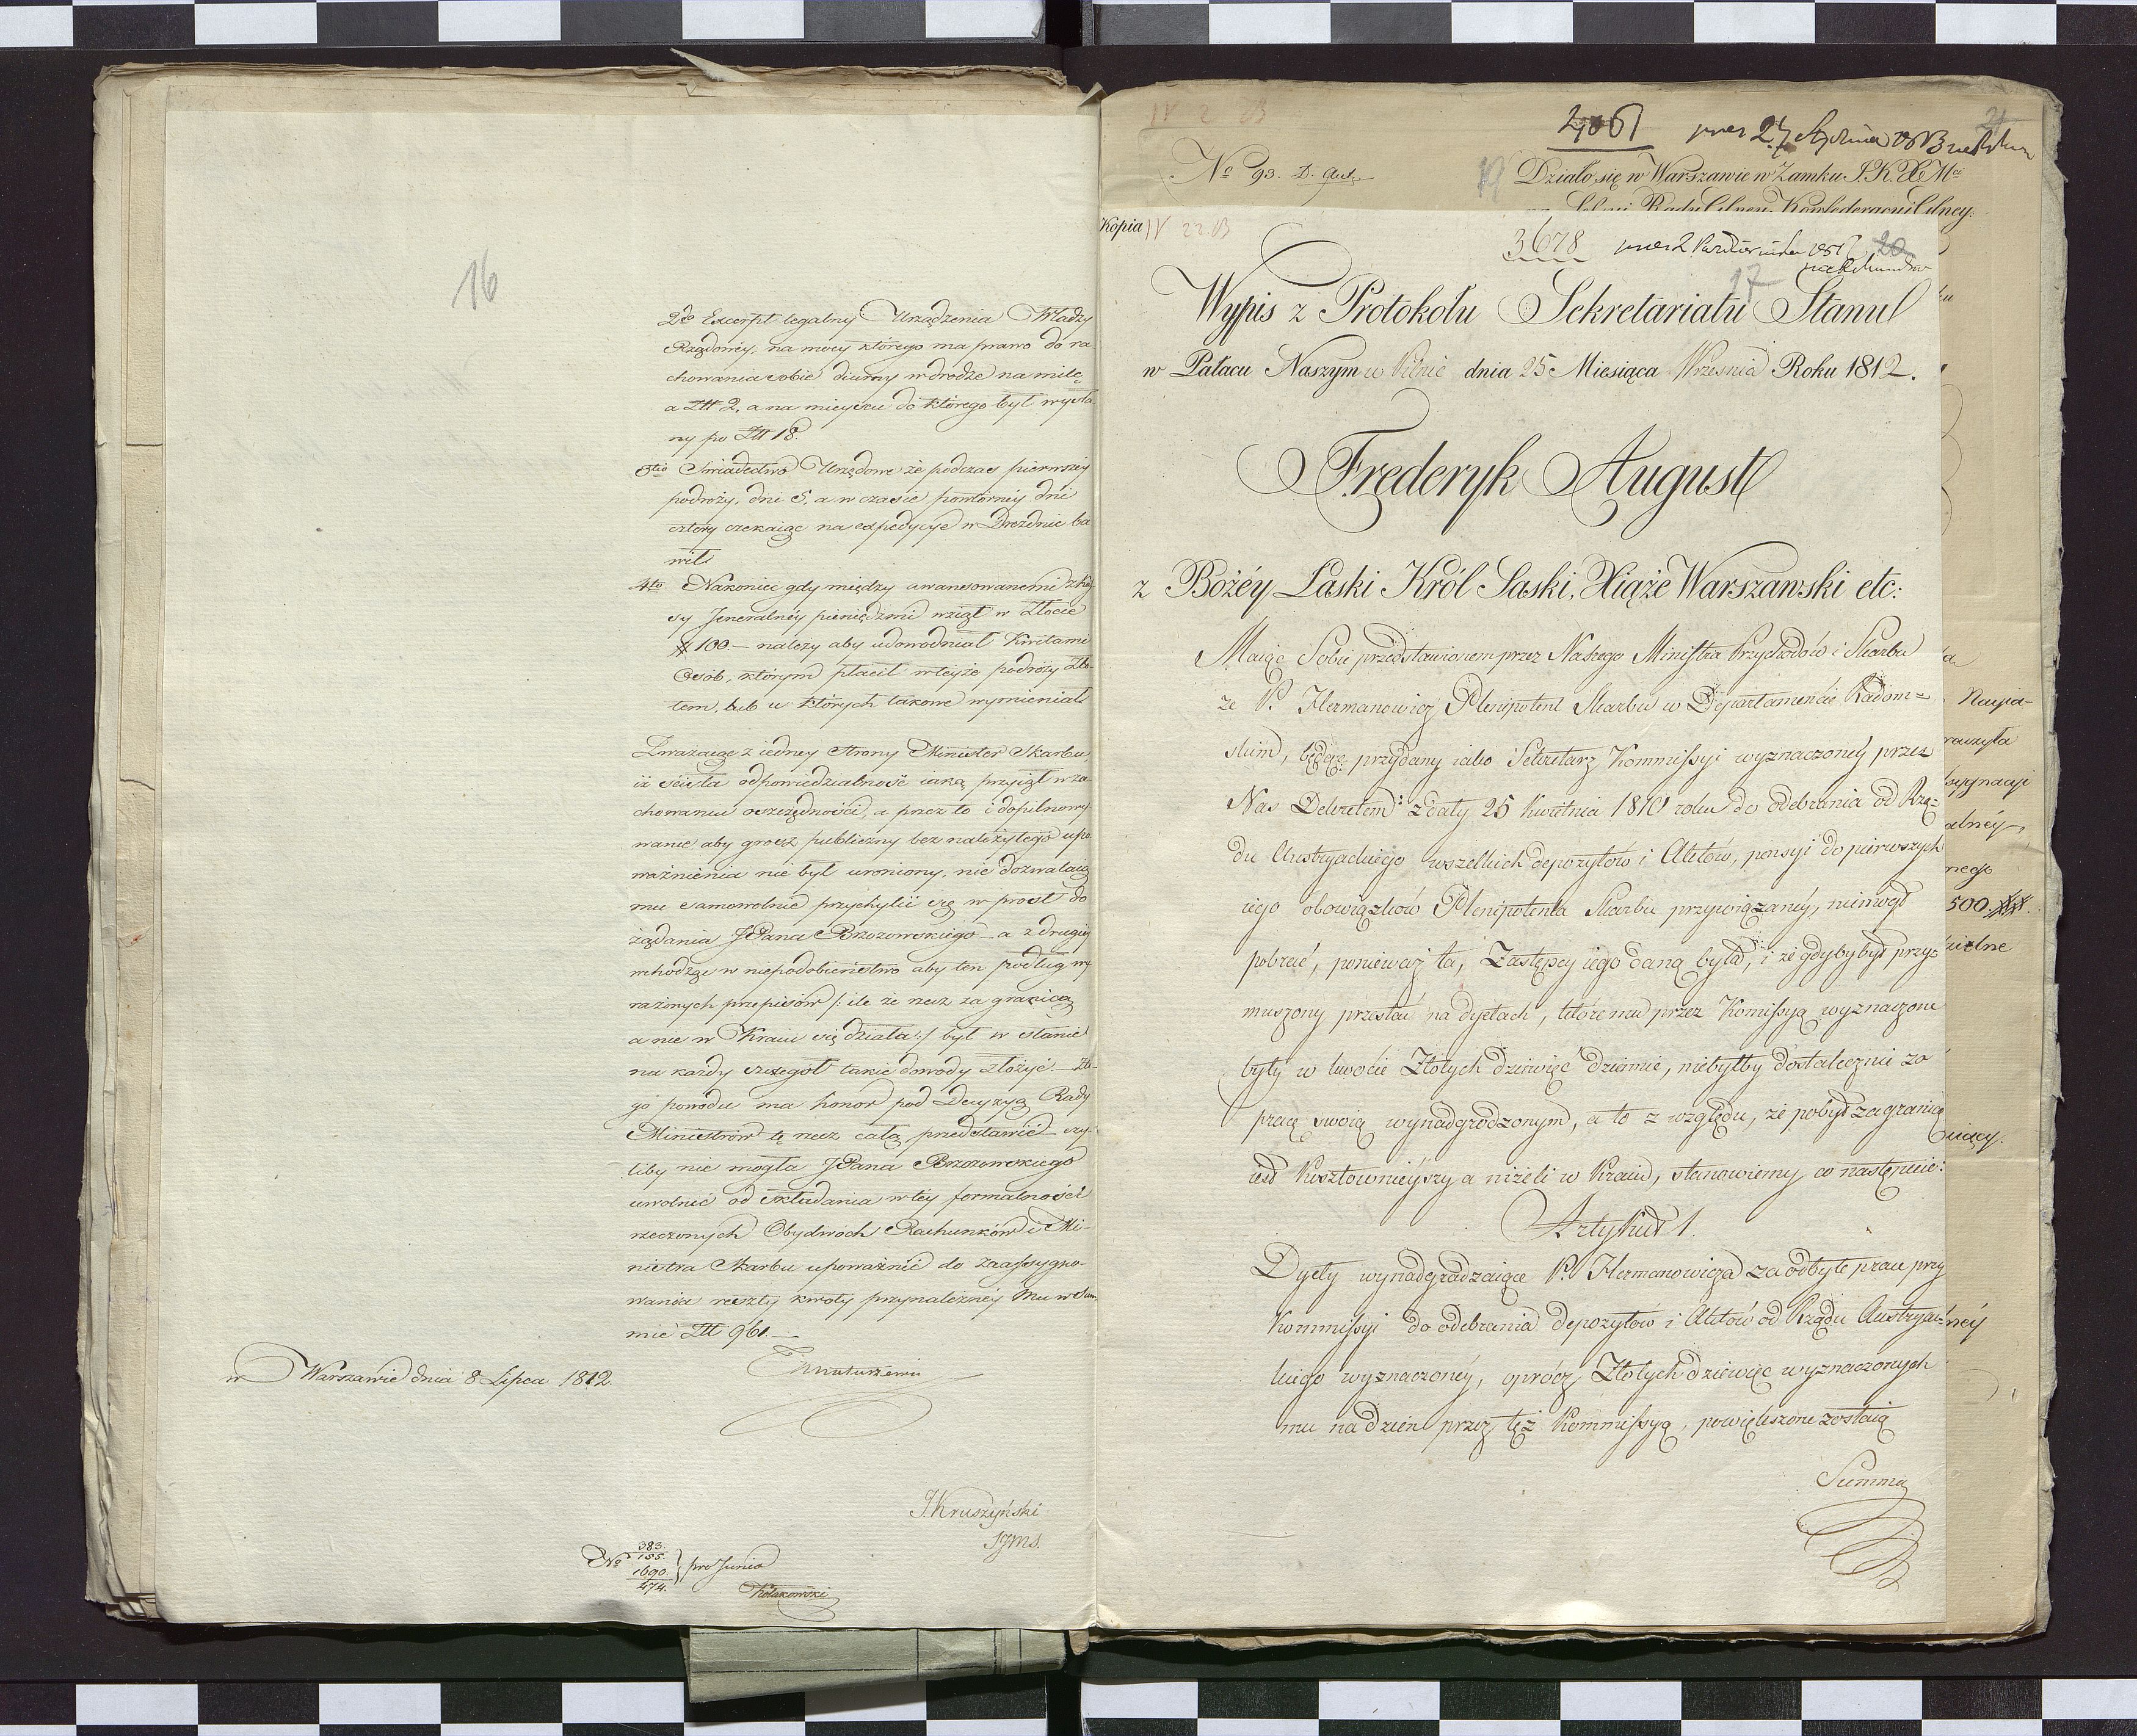 16
2do Excerpt legalny Urządzenia Władzy
Rządowéy, na mocy którego ma prawo do ra
chowania sobie diurny w drodze na milę
a Złł 2, a na mieyscu do którego był wysła
ny po Złł 18.
3tio Świadectwo Urzędowe że podczas pierwszéy
podroży, dni 5, a w czasie powtórnéy dni
cztery czekaiąc na expedycye w Dreźnie ba
wił.
4to Nakoniec gdy między awansowanemi z Kas
sy Jeneralnéy pieniędzmi wziął w Złocie
100.— należy aby udowodniał Kwitami
Osób, którym płacił w teyże podroży Zło-
tem, lub u których takowe wymieniał.
Zważaiąc z iedney strony Minister Skarbu,
iż ścisła odpowiedzialność iaką przyiął w za
chowaniu oszczędności, a przez to i dopilnowy
wanie aby grosz publiczny bez należytego upo
ważnienia nie był uroniony, nie dozwalaią
mu samowolnie przychylić się w prost do
żądania JPana Brzozowskiego — a z drugiey
wchodząc w niepodobieństwo aby ten podług wy
rażonych przepisów /: ile że rzecz za granicą
a nie w Kraiu się działa :/ był w stanie
na każdy szczegół takie dowody złożyć. — Z te-
go powodu ma honor pod Decyzyą Rady
Ministrów tę rzecz całą przedstawić — czy
liby nie mogła JPana Brzozowskiego
uwolnić od składania w téy formalności
rzeczonych Obydwóch Rachunków i Mi-
nistra Skarbu upoważnić do zaassygno-
wania reszty kwoty przynależnéy Mu w Sum-
mie Złł 961.—
w Warszawie dnia 8 Lipca 1812.
J Kruszyński
SJMS.
No 383.
155.
1690.
474.
pro Junio
Kołakowski
IV 2 B
No 93. D. Aut.
2061
21
19
Działo się w Warszawie w Zamku J. K. X Mci
Kopia
IV 22 B
3678
20
17
Wypis z Protokołu Sekretariatu Stanu
w Pałacu Naszym w Pilnic dnia 25 Miesiąca Września Roku 1812.
Frederyk August
z Bożéy Łaski Król Saski, Xiąże Warszawski etc:
Maiąc Sobie przedstawionem przez Naszego Ministra Przychodów i Skarbu
że P. Hermanowicz Plenipotent Skarbu w Departamencie Radom-
skim, będąc przydany iako Sekretarz Kommissyi wyznaczonéy przez
Nas Dekretem z daty 25 Kwietnia 1810 roku do odebrania od Rzą-
du Austryackiego wszelkich depozytów i Aktów, pensyi do pierwszych
iego obowiązków Plenipotenta Skarbu przywiązanéy, niemógł
pobrać, ponieważ ta, Zastępcy iego daną była, i że gdyby był przy-
muszony przestać na dyetach, które mu przez Komissyą wyznaczone
były w kwocie Złotych dziewięć dziennie, niebyłby dostatecznie za
pracę swoią wynadgrodzonym, a to z względu, że pobyt zagranicą
iest kosztownieyszy a niżeli w Kraiu, stanowiemy co następuie:
Artykuł 1.
Dyety wynadgradzaiące P. Hermanowicza za odbyte prace przy
Kommissyi do odebrania depozytów i Aktów od Rządu Austryac-
kiego wyznaczonéy, oprócz Złotych dziewięć wyznaczonych
mu na dzień przez też Kommissyą, powiększone zostaią
Summą
500